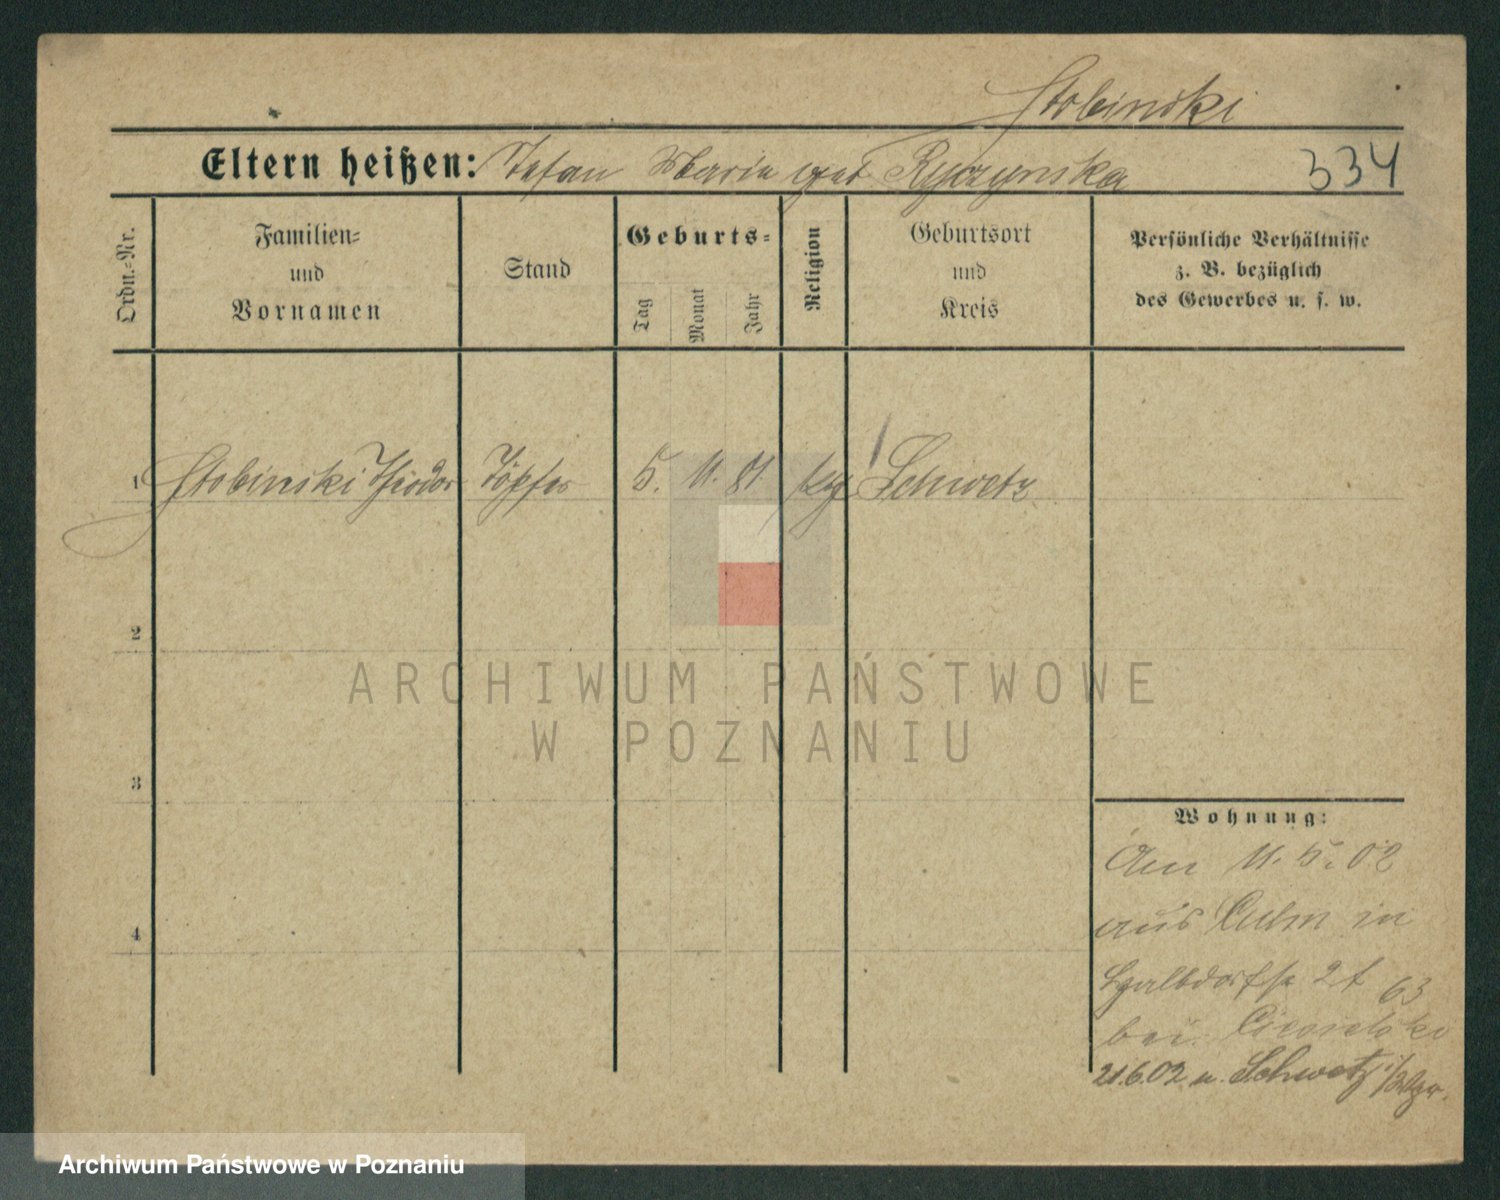 Stobinski
Eltern heißen: Stefan Maria geb Ryczynska
334
Ordn.-Nr.
Familien-
und
Vornamen
Stand
Geburts-
Tag
Monat
Jahr
Religion
Geburtsort
und
Kreis
Persönliche Verhältnisse
z. B. bezüglich
des Gewerbes u. s. w.
1 Stobinski Theodor Töpfer 5. 11. 81. kg Schwetz
2
3
4
Wohnung:
Am 11. 5. 02
aus Culm in
2 t 63
bei
21.6.02 n. Schwetz i/Wpr.
ARCHIWUM PAŃSTWOWE
W POZNANIU
Archiwum Państwowe w Poznaniu